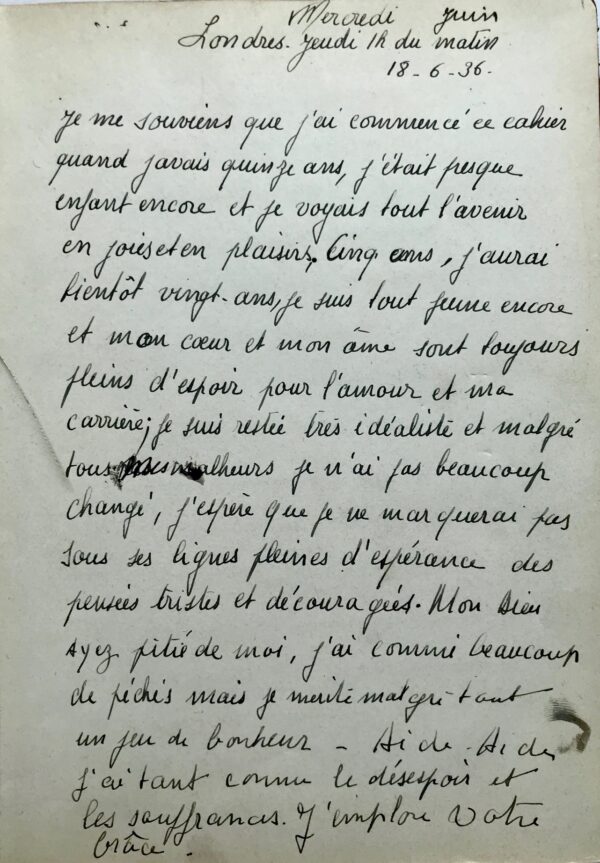 Mercredi juin
Londres. Jeudi 1h du matin
18-6-36.
Je me souviens que j'ai commencé ce cahier
quand javais quinze ans, j'était presque
enfant encore et je voyais tout l'avenir
en joies et en plaisirs. Cinq ans, j'aurai
bientôt vingt-ans, je suis tout jeune encore
et mon cœur et mon âme sont toujours
pleins d'espoir pour l'amour et ma
carrière; je suis restée très idéaliste et malgré
tous mes malheurs je n'ai pas beaucoup
changé, j'espère que je ne marquerai pas
sous ses lignes pleines d'espérance des
pensées tristes et découragées. Mon Dieu
Ayez pitié de moi, j'ai commi beaucoup
de péchés mais je merite malgré tout
un peu de bonheur - Aide. Aide,
j'ai tant connu le désespoir et
les souffrances. J'implore Votre
Grâce.